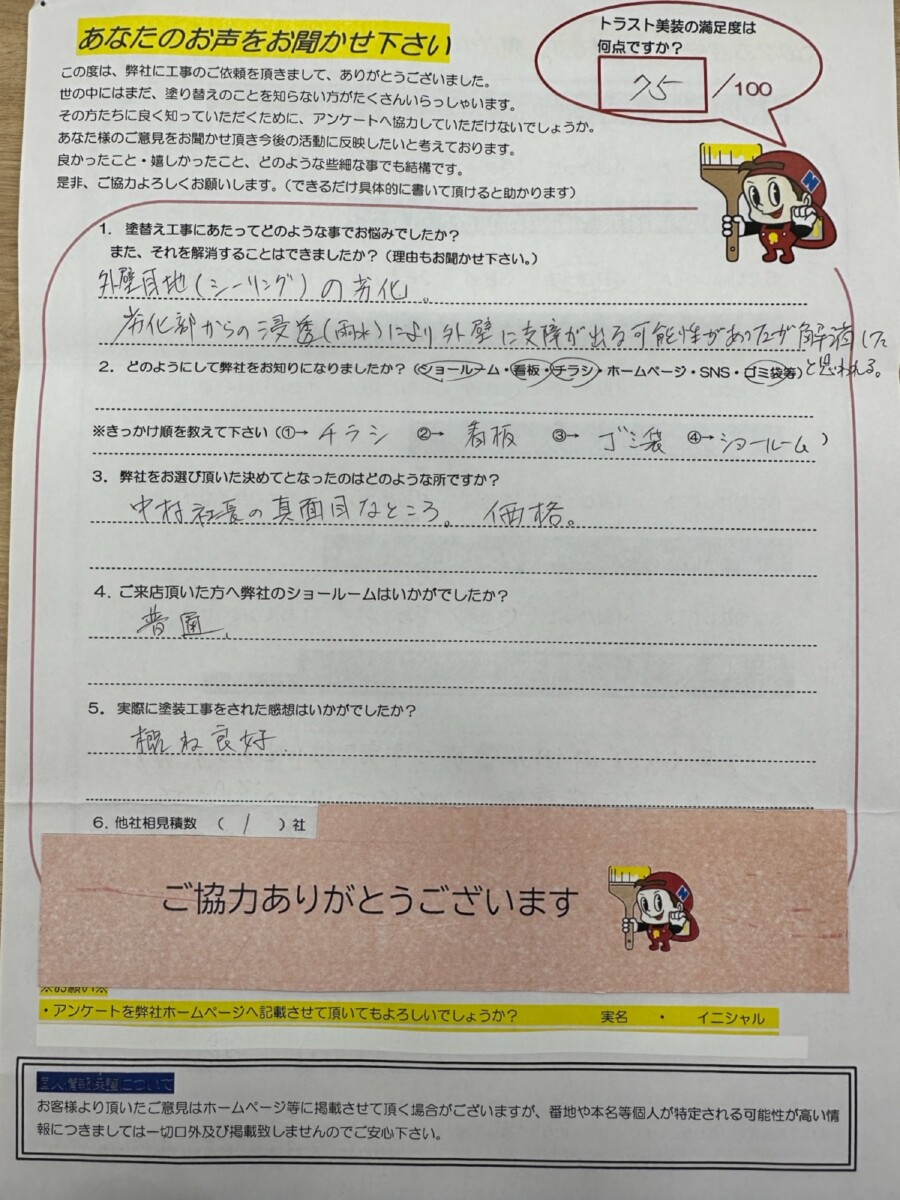 あなたのお声をお聞かせ下さい
トラスト美装の満足度は
何点ですか？
75／100
この度は、弊社に工事のご依頼を頂きまして、ありがとうございました。
世の中にはまだ、塗り替えのことを知らない方がたくさんいらっしゃいます。
その方たちに良く知っていただくために、アンケートへ協力していただけないでしょうか。
あなた様のご意見をお聞かせ頂き今後の活動に反映したいと考えております。
良かったこと・嬉しかったこと、どのような些細な事でも結構です。
是非、ご協力よろしくお願いします。（できるだけ具体的に書いて頂けると助かります）
N
1. 塗替え工事にあたってどのような事でお悩みでしたか？
また、それを解消することはできましたか？（理由もお聞かせ下さい。）
外壁目地（シーリング）の劣化。
劣化部からの浸透（雨水）により外壁に支障が出る可能性があったが解消した
と思われる。
2. どのようにして弊社をお知りになりましたか？（ショールーム・看板・チラシ・ホームページ・SNS・ゴミ袋等）
※きっかけ順を教えて下さい（①→ チラシ ②→ 看板 ③→ ゴミ袋 ④→ ショールーム ）
3. 弊社をお選び頂いた決めてとなったのはどのような所ですか？
中村社長の真面目なところ。 価格。
4. ご来店頂いた方へ弊社のショールームはいかがでしたか？
普通、
5. 実際に塗装工事をされた感想はいかがでしたか？
概ね良好
6. 他社相見積数 （ 1 ）社
ご協力ありがとうございます
N
※お願い※
・アンケートを弊社ホームページへ記載させて頂いてもよろしいでしょうか？ 実名 ・ イニシャル
個人情報保護について
お客様より頂いたご意見はホームページ等に掲載させて頂く場合がございますが、番地や本名等個人が特定される可能性が高い情
報につきましては一切口外及び掲載致しませんのでご安心下さい。